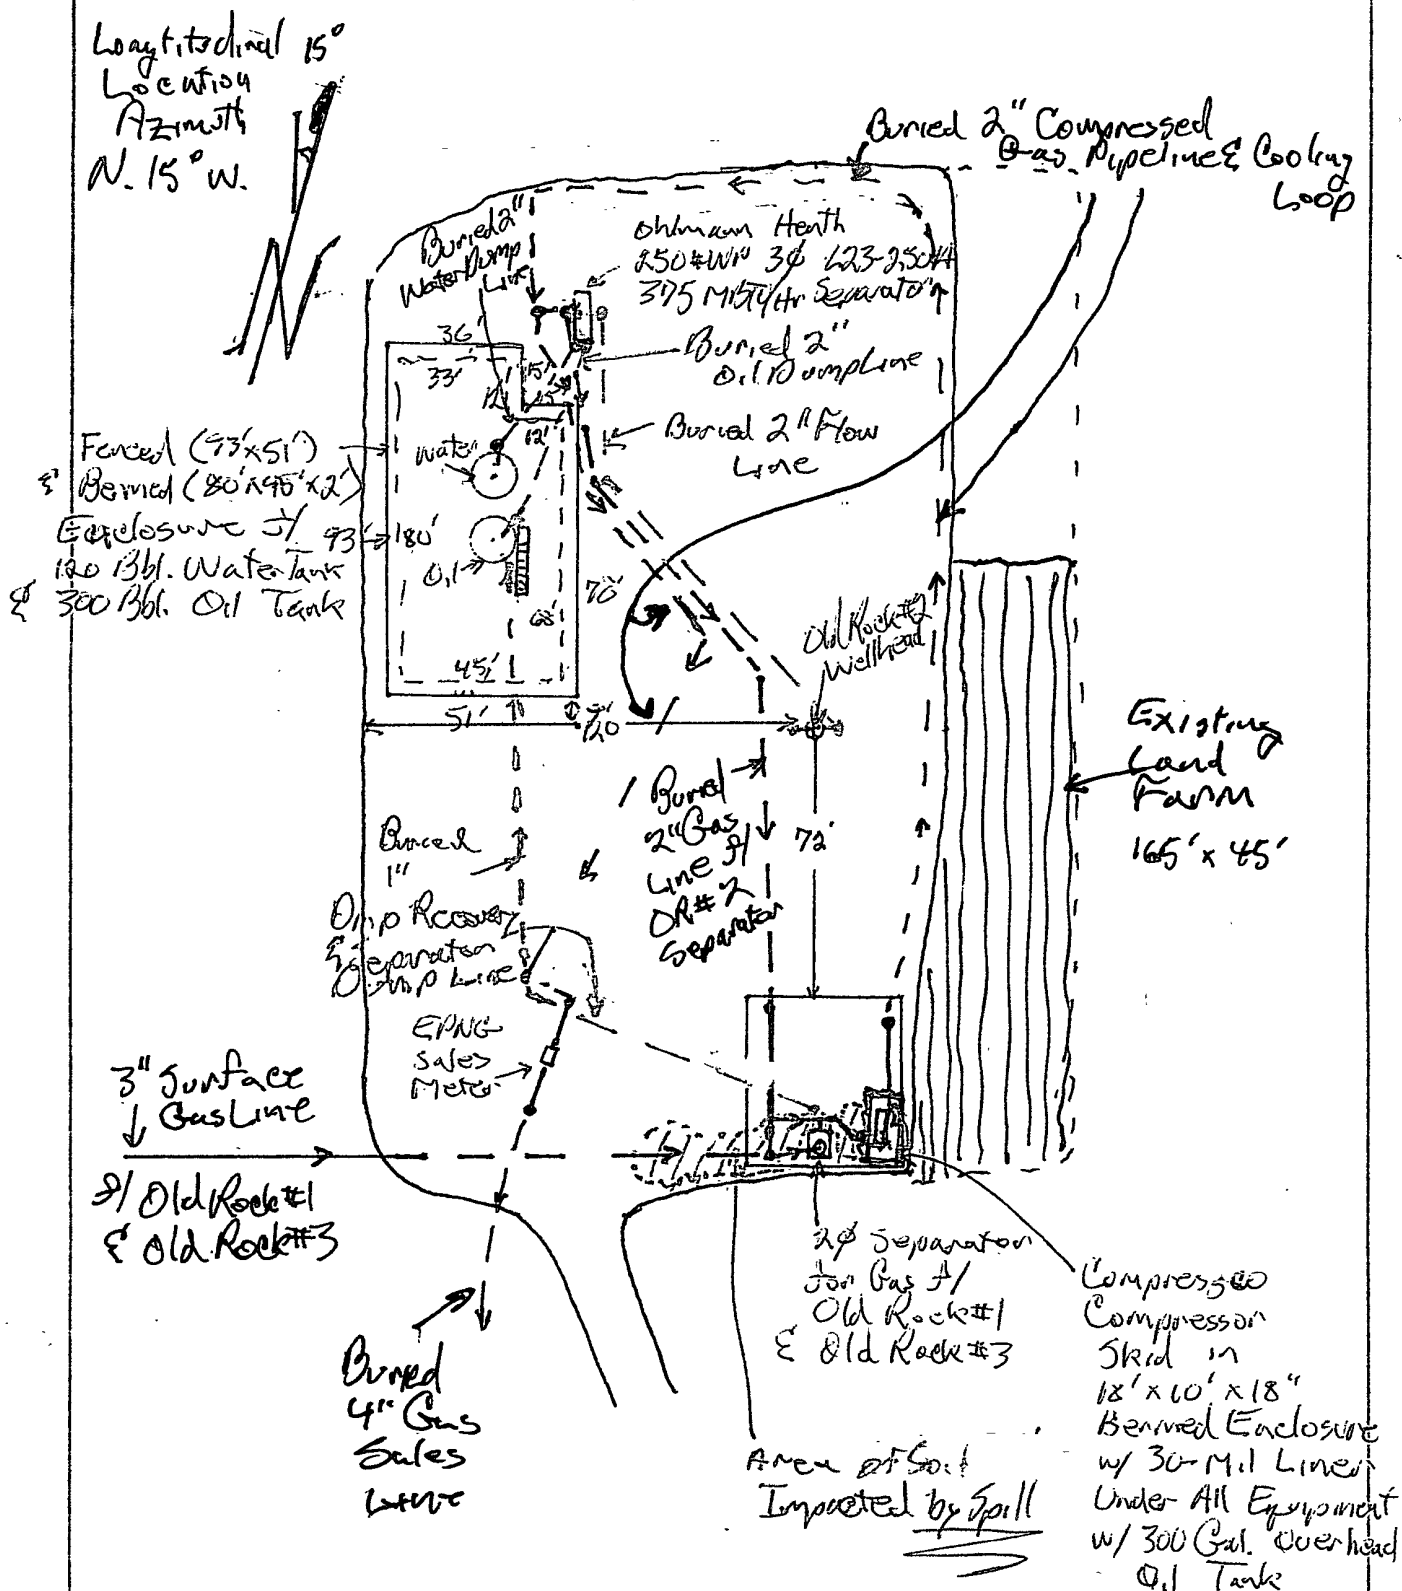 Longtitudinal 15°
Location
Azimuth
N. 15° W.
N
Buried 2" Compressed
Gas Pipeline & Cooling
Loop
Buried 2"
Water Dump
Line
Ohlmann Heath
250#WP 3φ L23-250H
375 MBTU/Hr Separator
36'
33'
15'
15'
12'
12'
Buried 2"
Oil Dump Line
Buried 2" Flow
Line
Fenced (93'x51')
& Bermed (80'x45'x2')
Enclosure f/
120 Bbl. Water Tank
& 300 Bbl. Oil Tank
93'
80'
Water
Oil
70'
68'
45'
51'
120'
Old Rock #2
Wellhead
Existing
Land
Farm
165' x 45'
Buried
2" Gas
Line f/
OR#2
Separator
72'
Buried
1"
Drip Recovery
& Separator
Dump Line
EPNG
Sales
Meter
3" Surface
Gas Line
f/ Old Rock #1
& Old Rock #3
2φ Separator
for Gas f/
Old Rock #1
& Old Rock #3
Compressco
Compressor
Skid in
18' x 10' x 18"
Bermed Enclosure
w/ 30-Mil Liner
Under All Equipment
w/ 300 Gal. Overhead
Oil Tank
Buried
4" Gas
Sales
Line
Area of Soil
Impacted by Spill